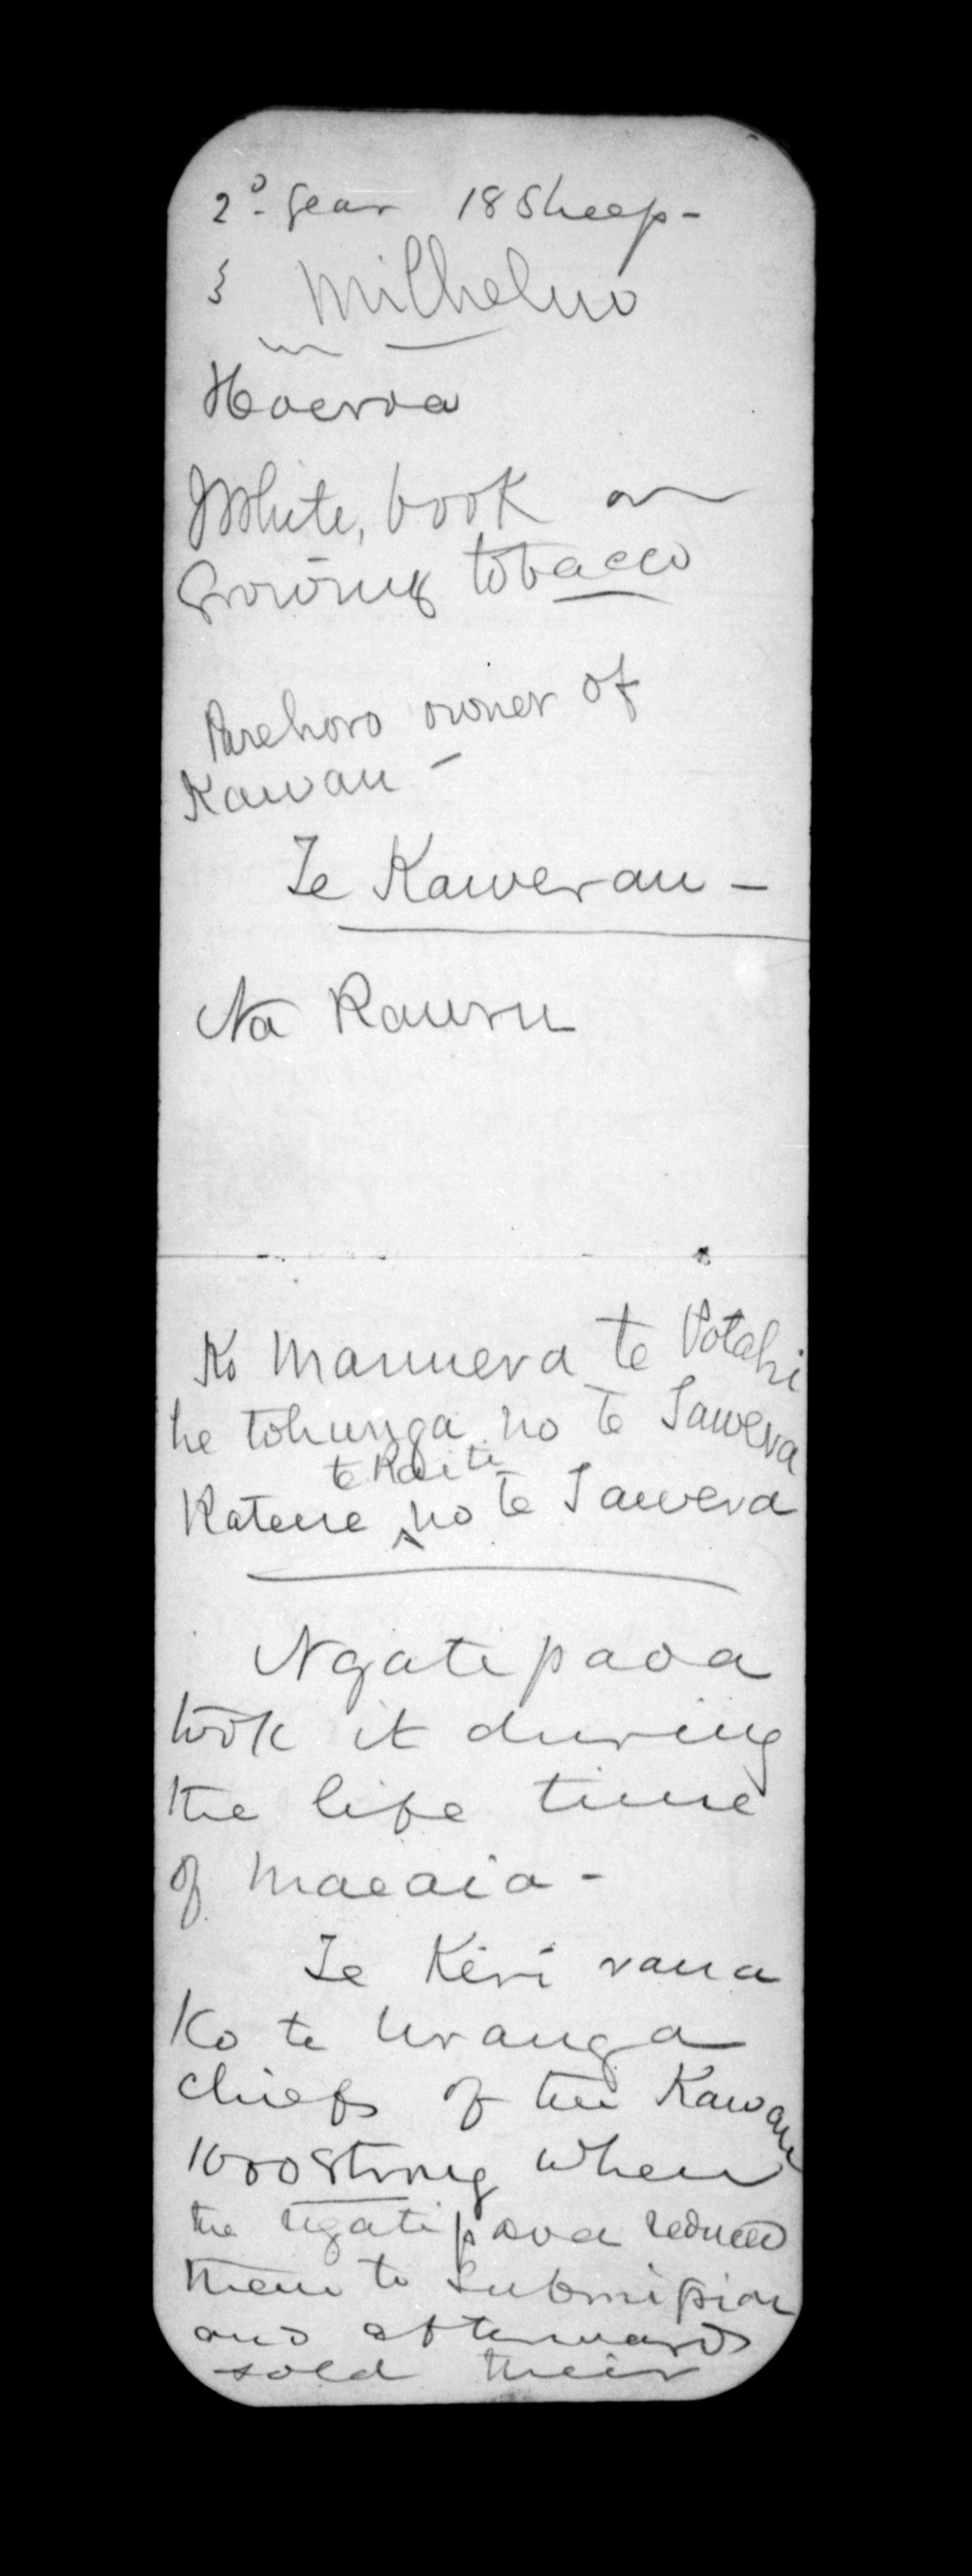 2º Gear 18 Sheep -
3 Milhelmo
Hoeroa
White, book on
Growing tobacco
Parehoro owner of
Kawau -
Te Kawerau -
Na Rauru
Ko Manuera te Potahi
he tohunga no te Tawera
te Raiti
Ratene no te Tawera
Ngatipaoa
took it during
the life time
of maeaia -
Te Kiri rana
Ko te uranga
chiefs of the Kawau
1000 strong when
the Ngatipaoa reduced
them to submission
and afterwards
sold their